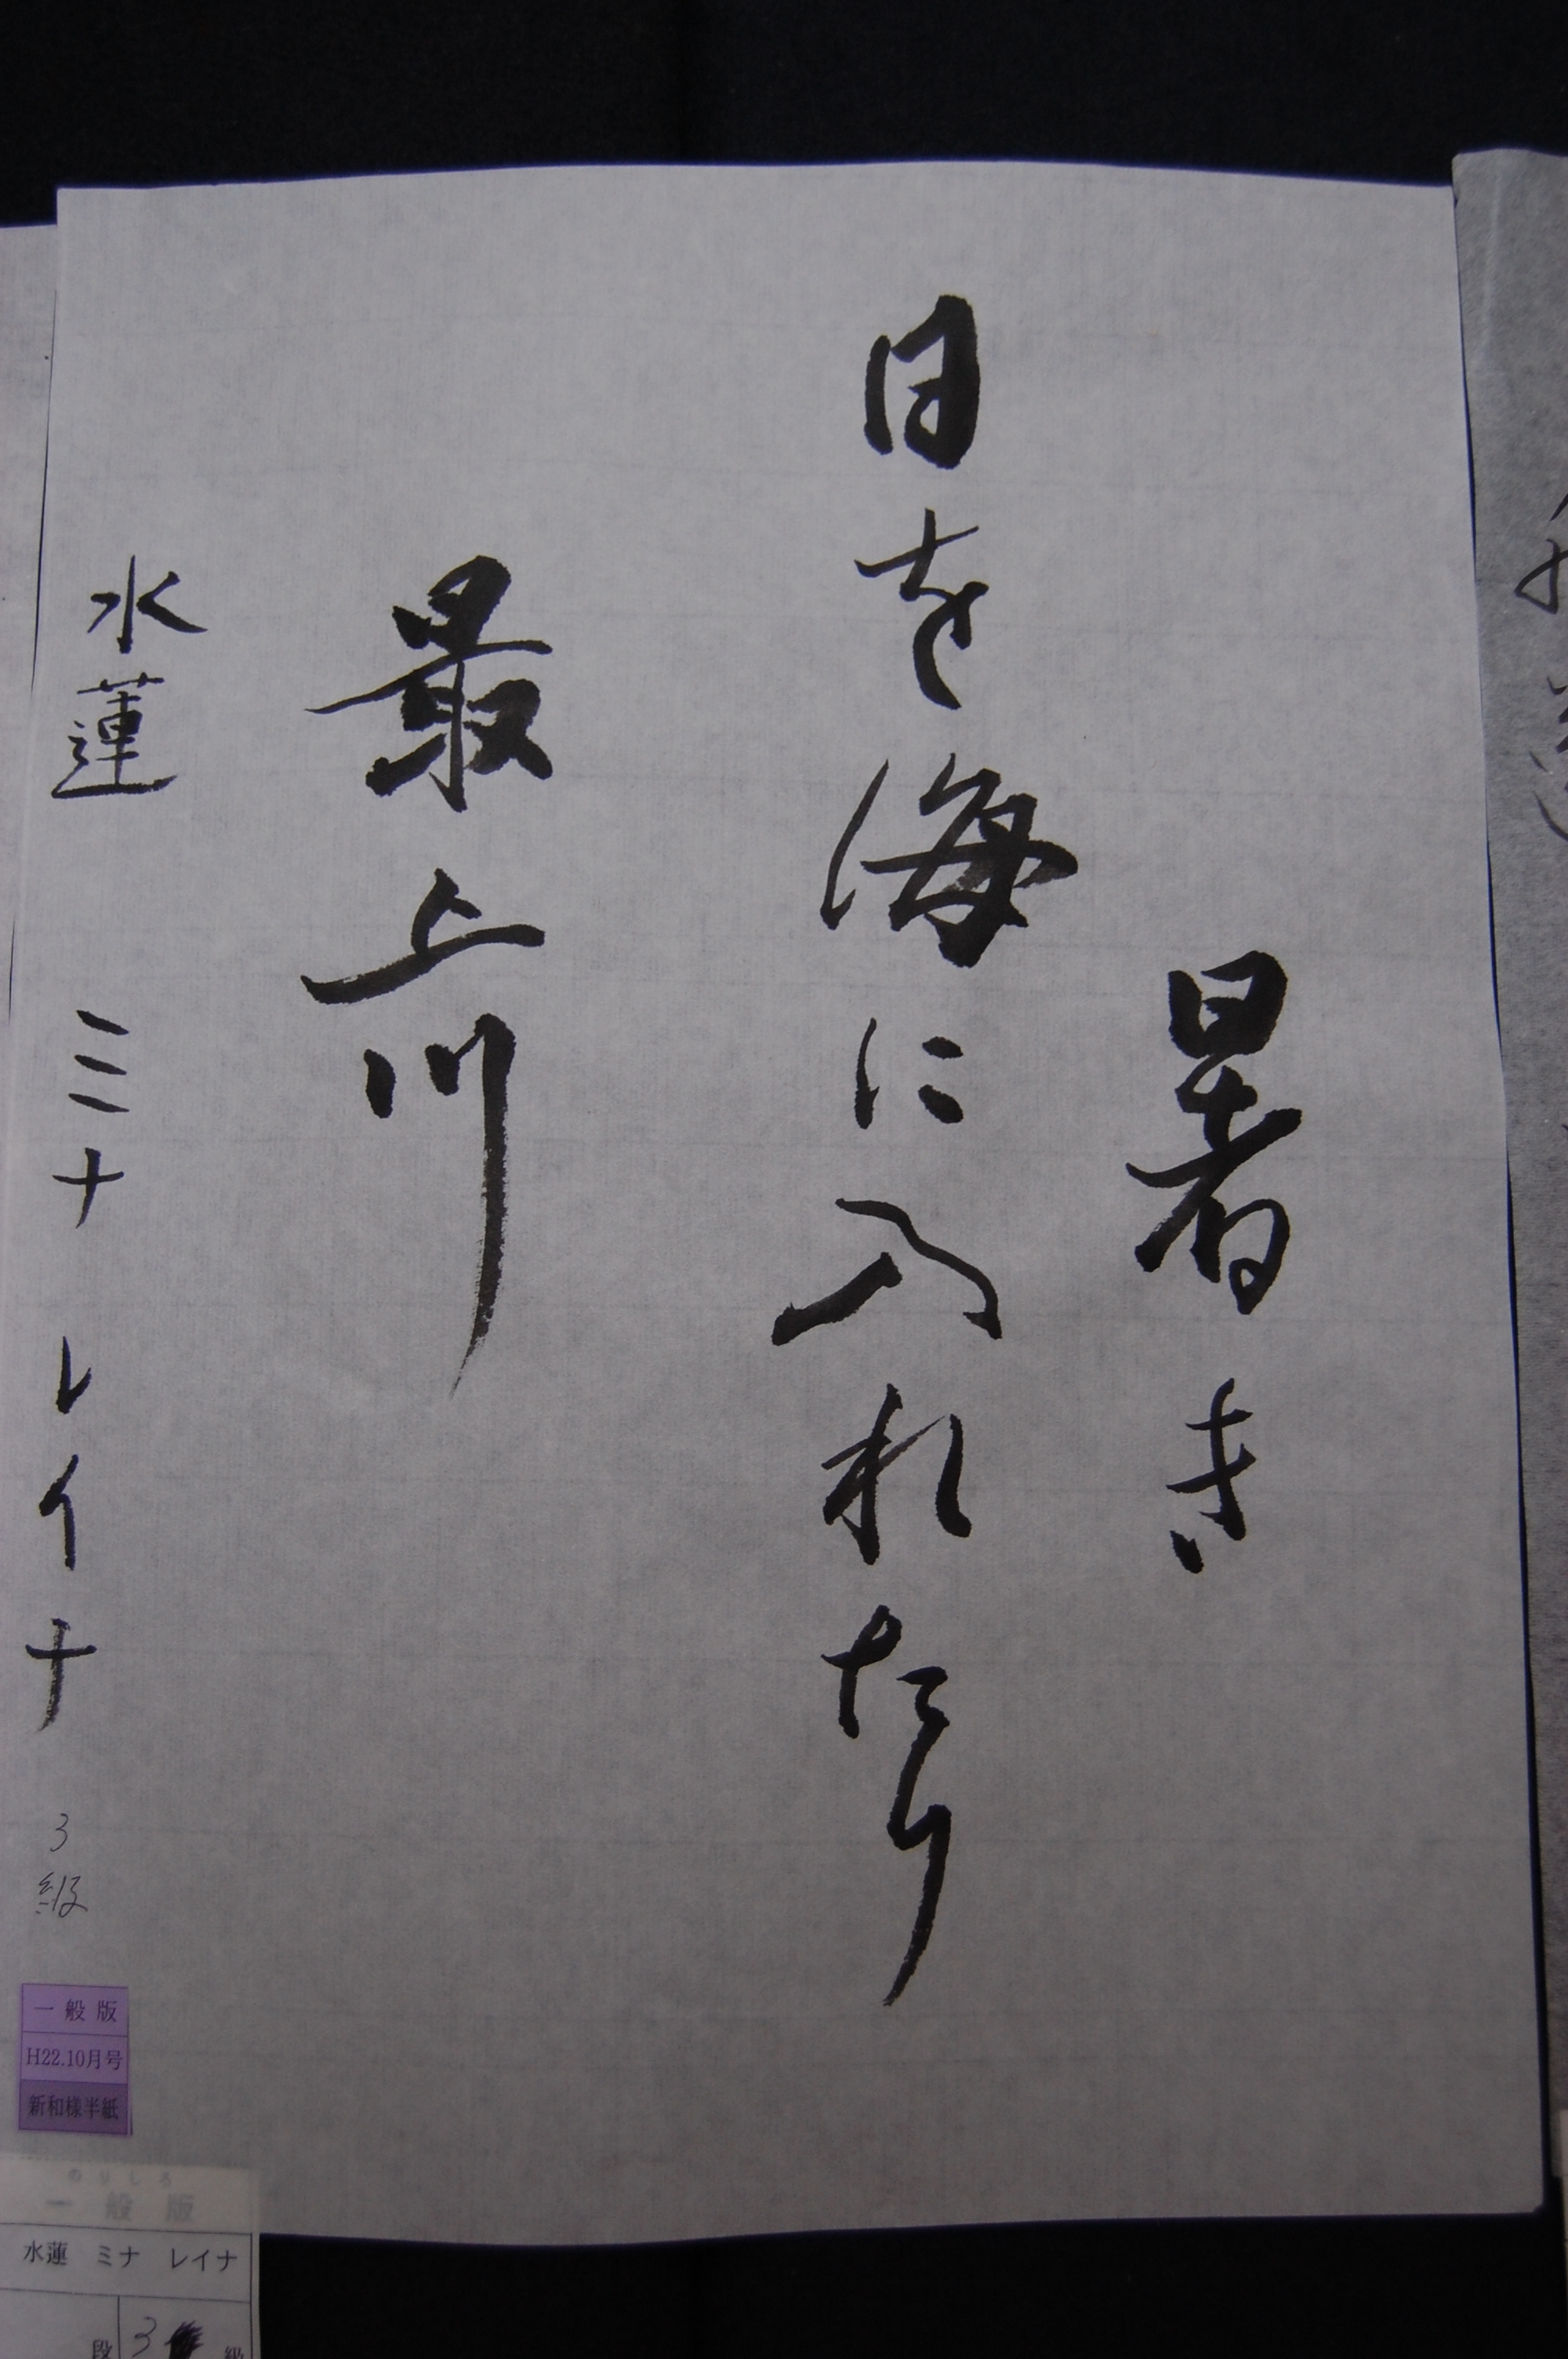 暑き
日を海に入れたり
最上川
水蓮 ミナ レイナ 3級
一般版
H22.10月号
新和様半紙
のりしろ
一般版
水蓮 ミナ レイナ
段 3 級